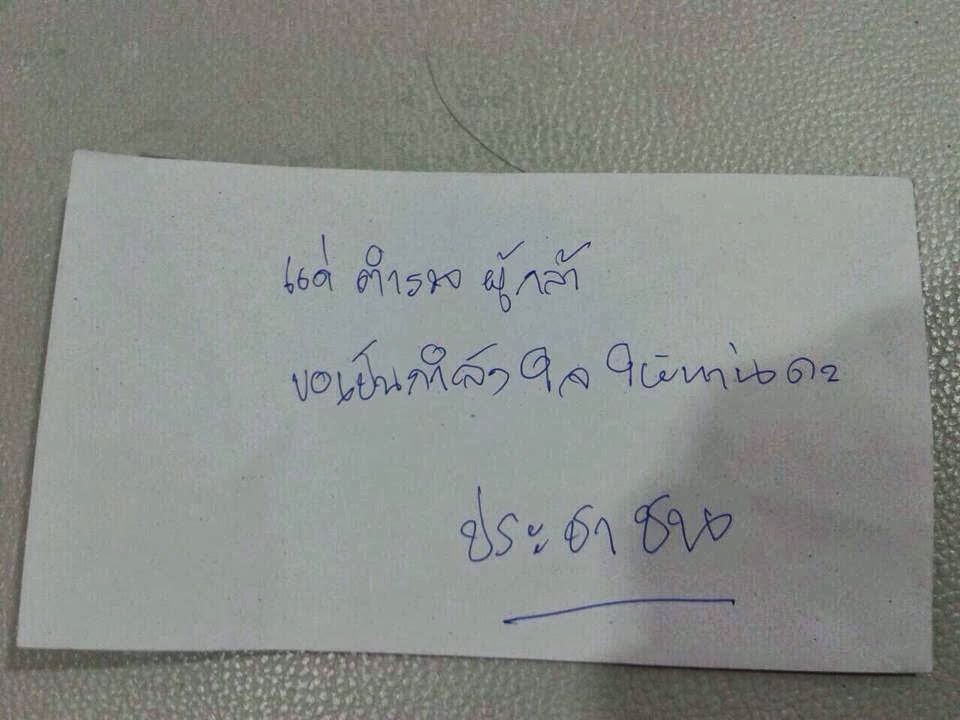 แด่ ตำรวจ ผู้กล้า
ขอเป็นกำลังใจ ให้ท่านคะ
ประชาชน